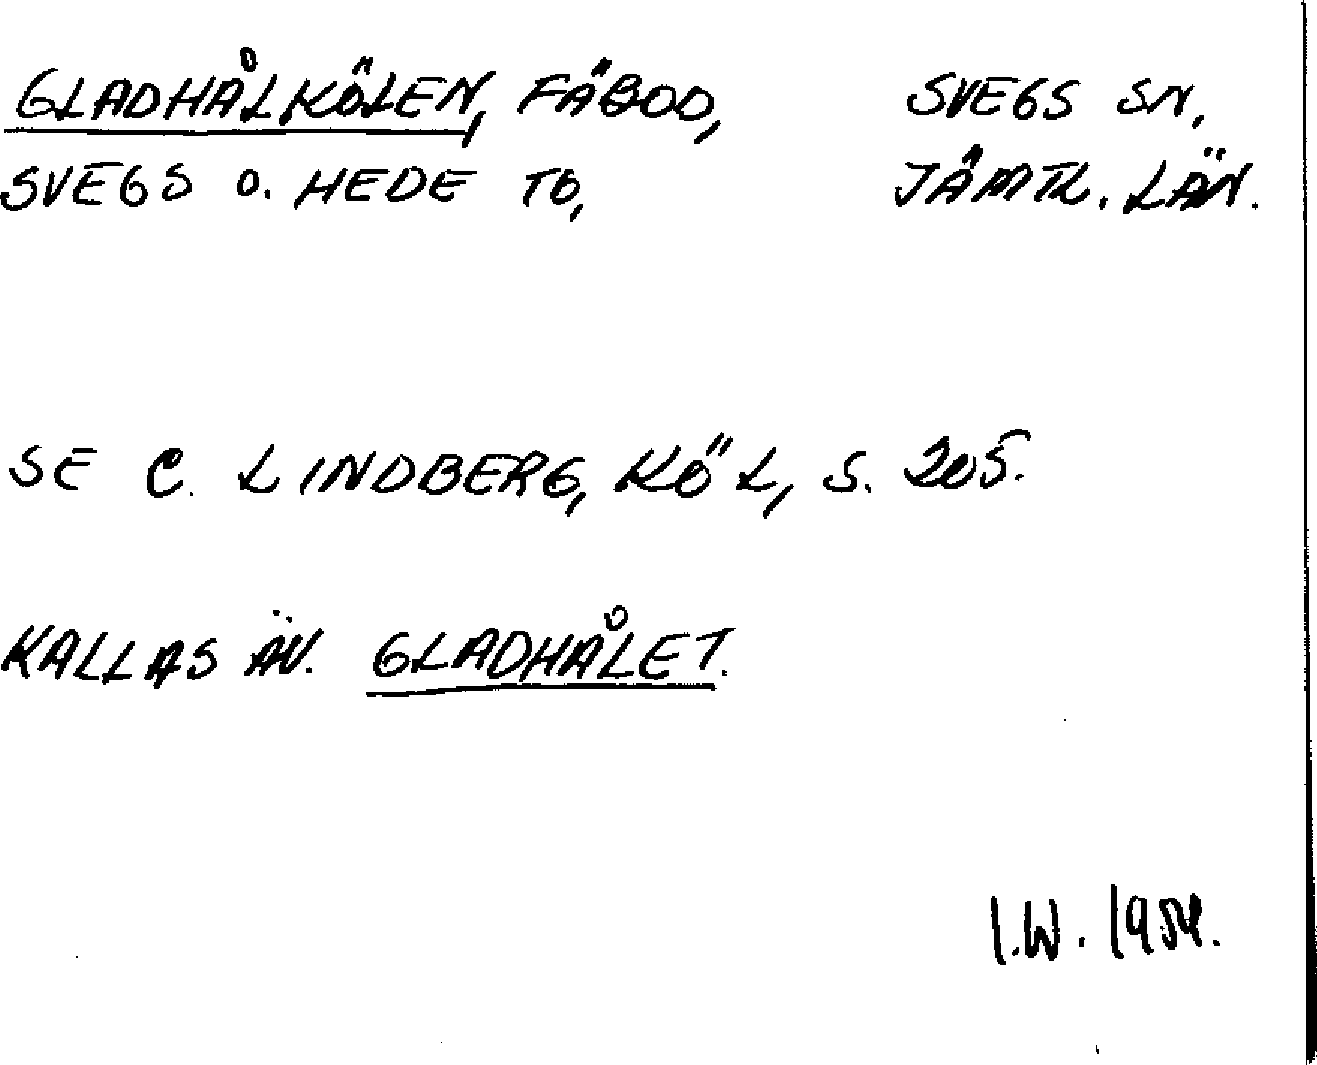 GLADHÅLKÖLEN, FÄBOD, SVEGS SN,
SVEGS O. HEDE TB, JÄMTL. LÄN.
SE C. LINDBERG, KÖL, S. 205.
KALLAS ÄV. GLADHÅLET.
I.W. 1954.